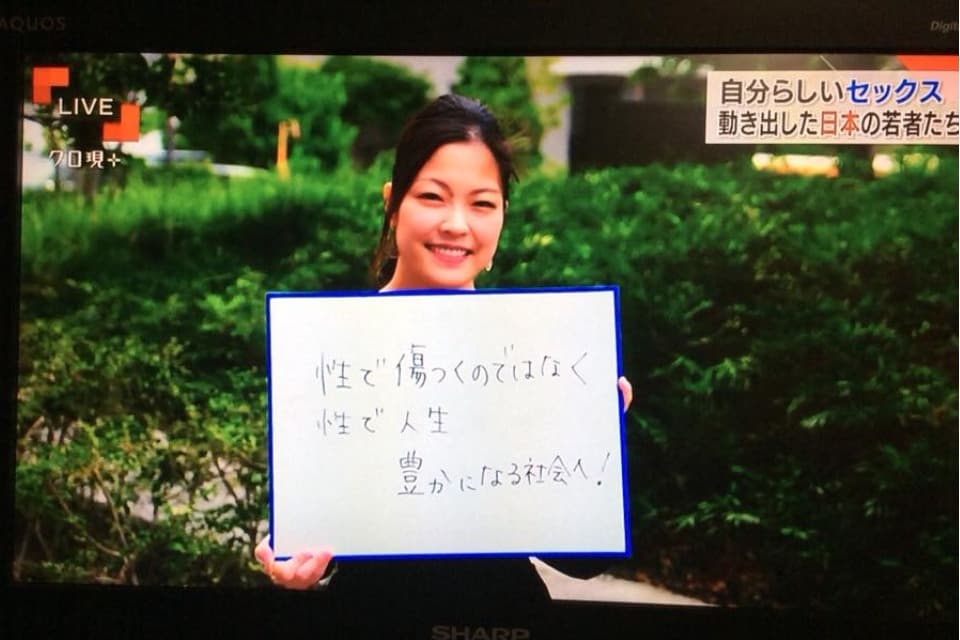 AQUOS
LIVE
クロ現+
自分らしいセックス
動き出した日本の若者たち
性で傷つくのではなく
性で人生
豊かになる社会へ!
SHARP